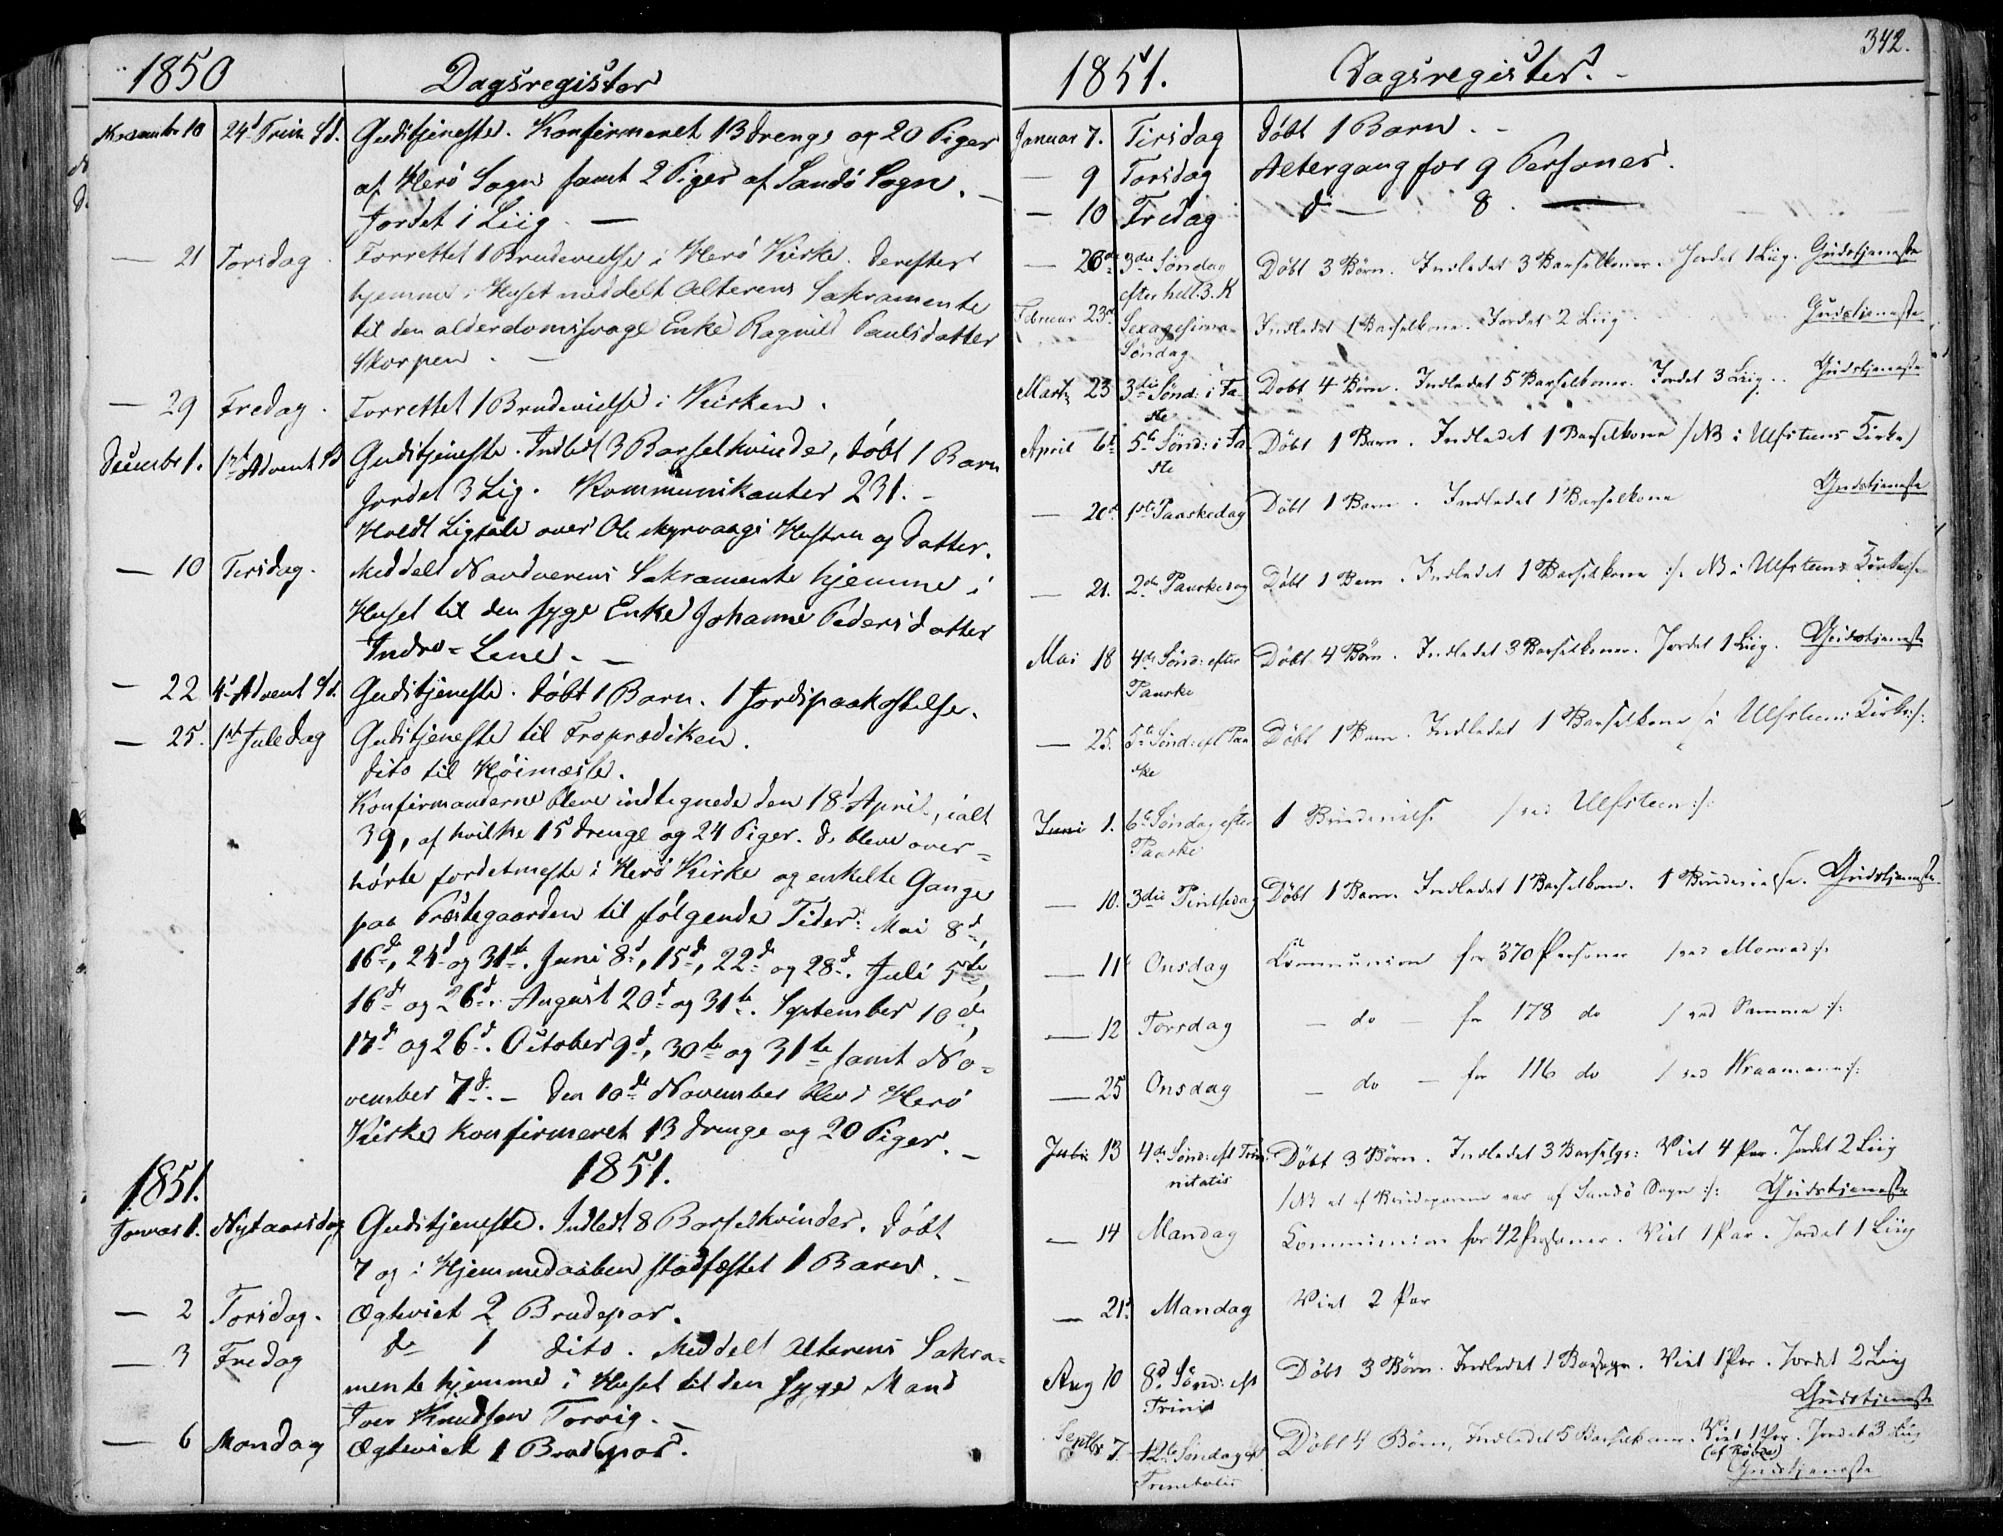 1850 Dagsregister
Novembr 10 24d Trin. Sd. Gudstjeneste. Konfirmeret 13 Drenge og 20 Piger
af Herö Sogn samt 2 Piger af Sandö Sogn. —
Jordet 1 Liig. —
— 21 Torsdag. Forrettet 1 Brudevielse i Herö Kirke. Derefter
hjemme i Huset meddelt Alterens Sakramente
til den alderdomssvage Enke Ragnild Paulsdatter
Skorpen. —
— 29 Fredag. Forrettet 1 Brudevielse i Kirken.
Decembr 1. 1ste Advent Sd Gudstjeneste. Indledt 3 Barselkvinder, döbt 1 Barn
Jordet 3 Lig. Kommunikanter 231. —
Holdt Ligtale over Ole Myrvaags Hustru og Datter.
— 10 Tirsdag. Meddelt Nardverens Sakramente hjemme i
Huset til den syge Enke Johanne Pedersdatter
Indre-Lene. —
— 22 4d Advent Sd. Gudstjeneste. Döbt 1 Barn. 1 Jordspaakastelse.
— 25. 1ste Juledag Gudstjeneste til Froprædiken.
Dito til Höimæsse.
Konfirmanderne bleve indtegnede den 18d April, ialt
39, af hvilke 15 Drenge og 24 Piger. De bleve over-
hörte fordetmeste i Herö Kirke og enkelte Gange
paa Præstegaarden til fölgende Tider: Mai 8d,
16d, 24d og 31te. Juni 8d, 15d, 22d og 28d. Juli 5te,
16d og 26d. August 20d og 31te. September 10de,
17d og 26d. October 9d, 30te og 31te samt No-
vember 7d. — Den 10de November blev i Herö
Kirke konfirmeret 13 Drenge og 20 Piger. —
1851. 1851.
Januar 1. Nytaarsdag Gudstjeneste. Indledt 8 Barselkvinder. Döbt
7 og i Hjemmedaaben stadfæstet 1 Barn. —
— 2 Torsdag. Ægteviet 2 Brudepar.
— 3 Fredag do 1 dito. Meddelt Alterens Sakra-
mente hjemme i Huset til den syge Mand
Iver Knudsen Torvig. —
— 6 Mandag Ægteviet 1 Brudepar.
1851. Dagsregister. — 342.
Januar 7. Tirsdag Döbt 1 Barn. —
— 9 Torsdag Altergang for 9 Personer.
— 10 Fredag do — 8. —
— 26de 3die Söndag Döbt 3 Börn. Indledet 3 Barselkoner. Jordet 1 Liig. Gudstjeneste
efter hell. 3. K
Februar 23de Sexagesima Indledet 1 Barselkone. Jordet 2 Liig Gudstjeneste
Söndag
Marts 23 3die Sönd: i Fa Döbt 4 Börn. Indledet 5 Barselkoner. Jordet 3 Liig. Gudstjeneste
ste
April 6te 5te Sönd: i Fa Döbt 1 Barn. Indledet 1 Barselkone /NB i Ulfstens Kirke/
ste
— 20d. 1ste Paaskedag Döbt 1 Barn. Indledet 1 Barselkone Gudstjeneste
— 21. 2den Paaskedag Döbt 1 Barn. Indledet 1 Barselkone /: NB i Ulfstens Kirke :/
Mai 18 4de Sönd: efter Döbt 4 Börn. Indledet 3 Barselkoner. Jordet 1 Liig. Gudstjeneste
Paaske
— 25. 5te Sönd: eft Paa Döbt 1 Barn. Indledet 1 Barselkone /: i Ulfsteens Kirke :/
ske
Juni 1. 6te Söndag efter 1 Brudevielse /: ved Ulfsteen :/
Paaske
— 10. 3die Pintsedag Döbt 1 Barn. Indledet 1 Barselkone. 1 Brudevielse. Gudstjeneste
— 11te Onsdag Communion for 370 Personer /: ved Monrad :/
— 12 Torsdag — do — for 178 do /: ved Samme :/
— 25 Onsdag — do — for 116 do /: ved Kraamann :/
Juli 13 4de Sönd: eft Tri Döbt 3 Börn. Indledet 3 Barselqv: Viet 4 Par. Jordet 2 Liig
nitatis /: NB et af Brudeparrene var af Sandö Sogn :/ Gudstjeneste
— 14 Mandag Communion for 42 Personer. Viet 1 Par. Jordet 1 Liig
— 21d. Mandag Viet 2 Par
Aug 10 8d Sönd: eft Döbt 3 Börn. Indledet 1 Barselqv. Viet 1 Par. Jordet 2 Liig
Trinit Gudstjeneste
Septbr 7. 12te Söndag eft Döbt 4 Börn, Indledet 5 Barselkoner. Viet 1 Par. Jordet 3 Liig
Trinitatis Gudstjeneste